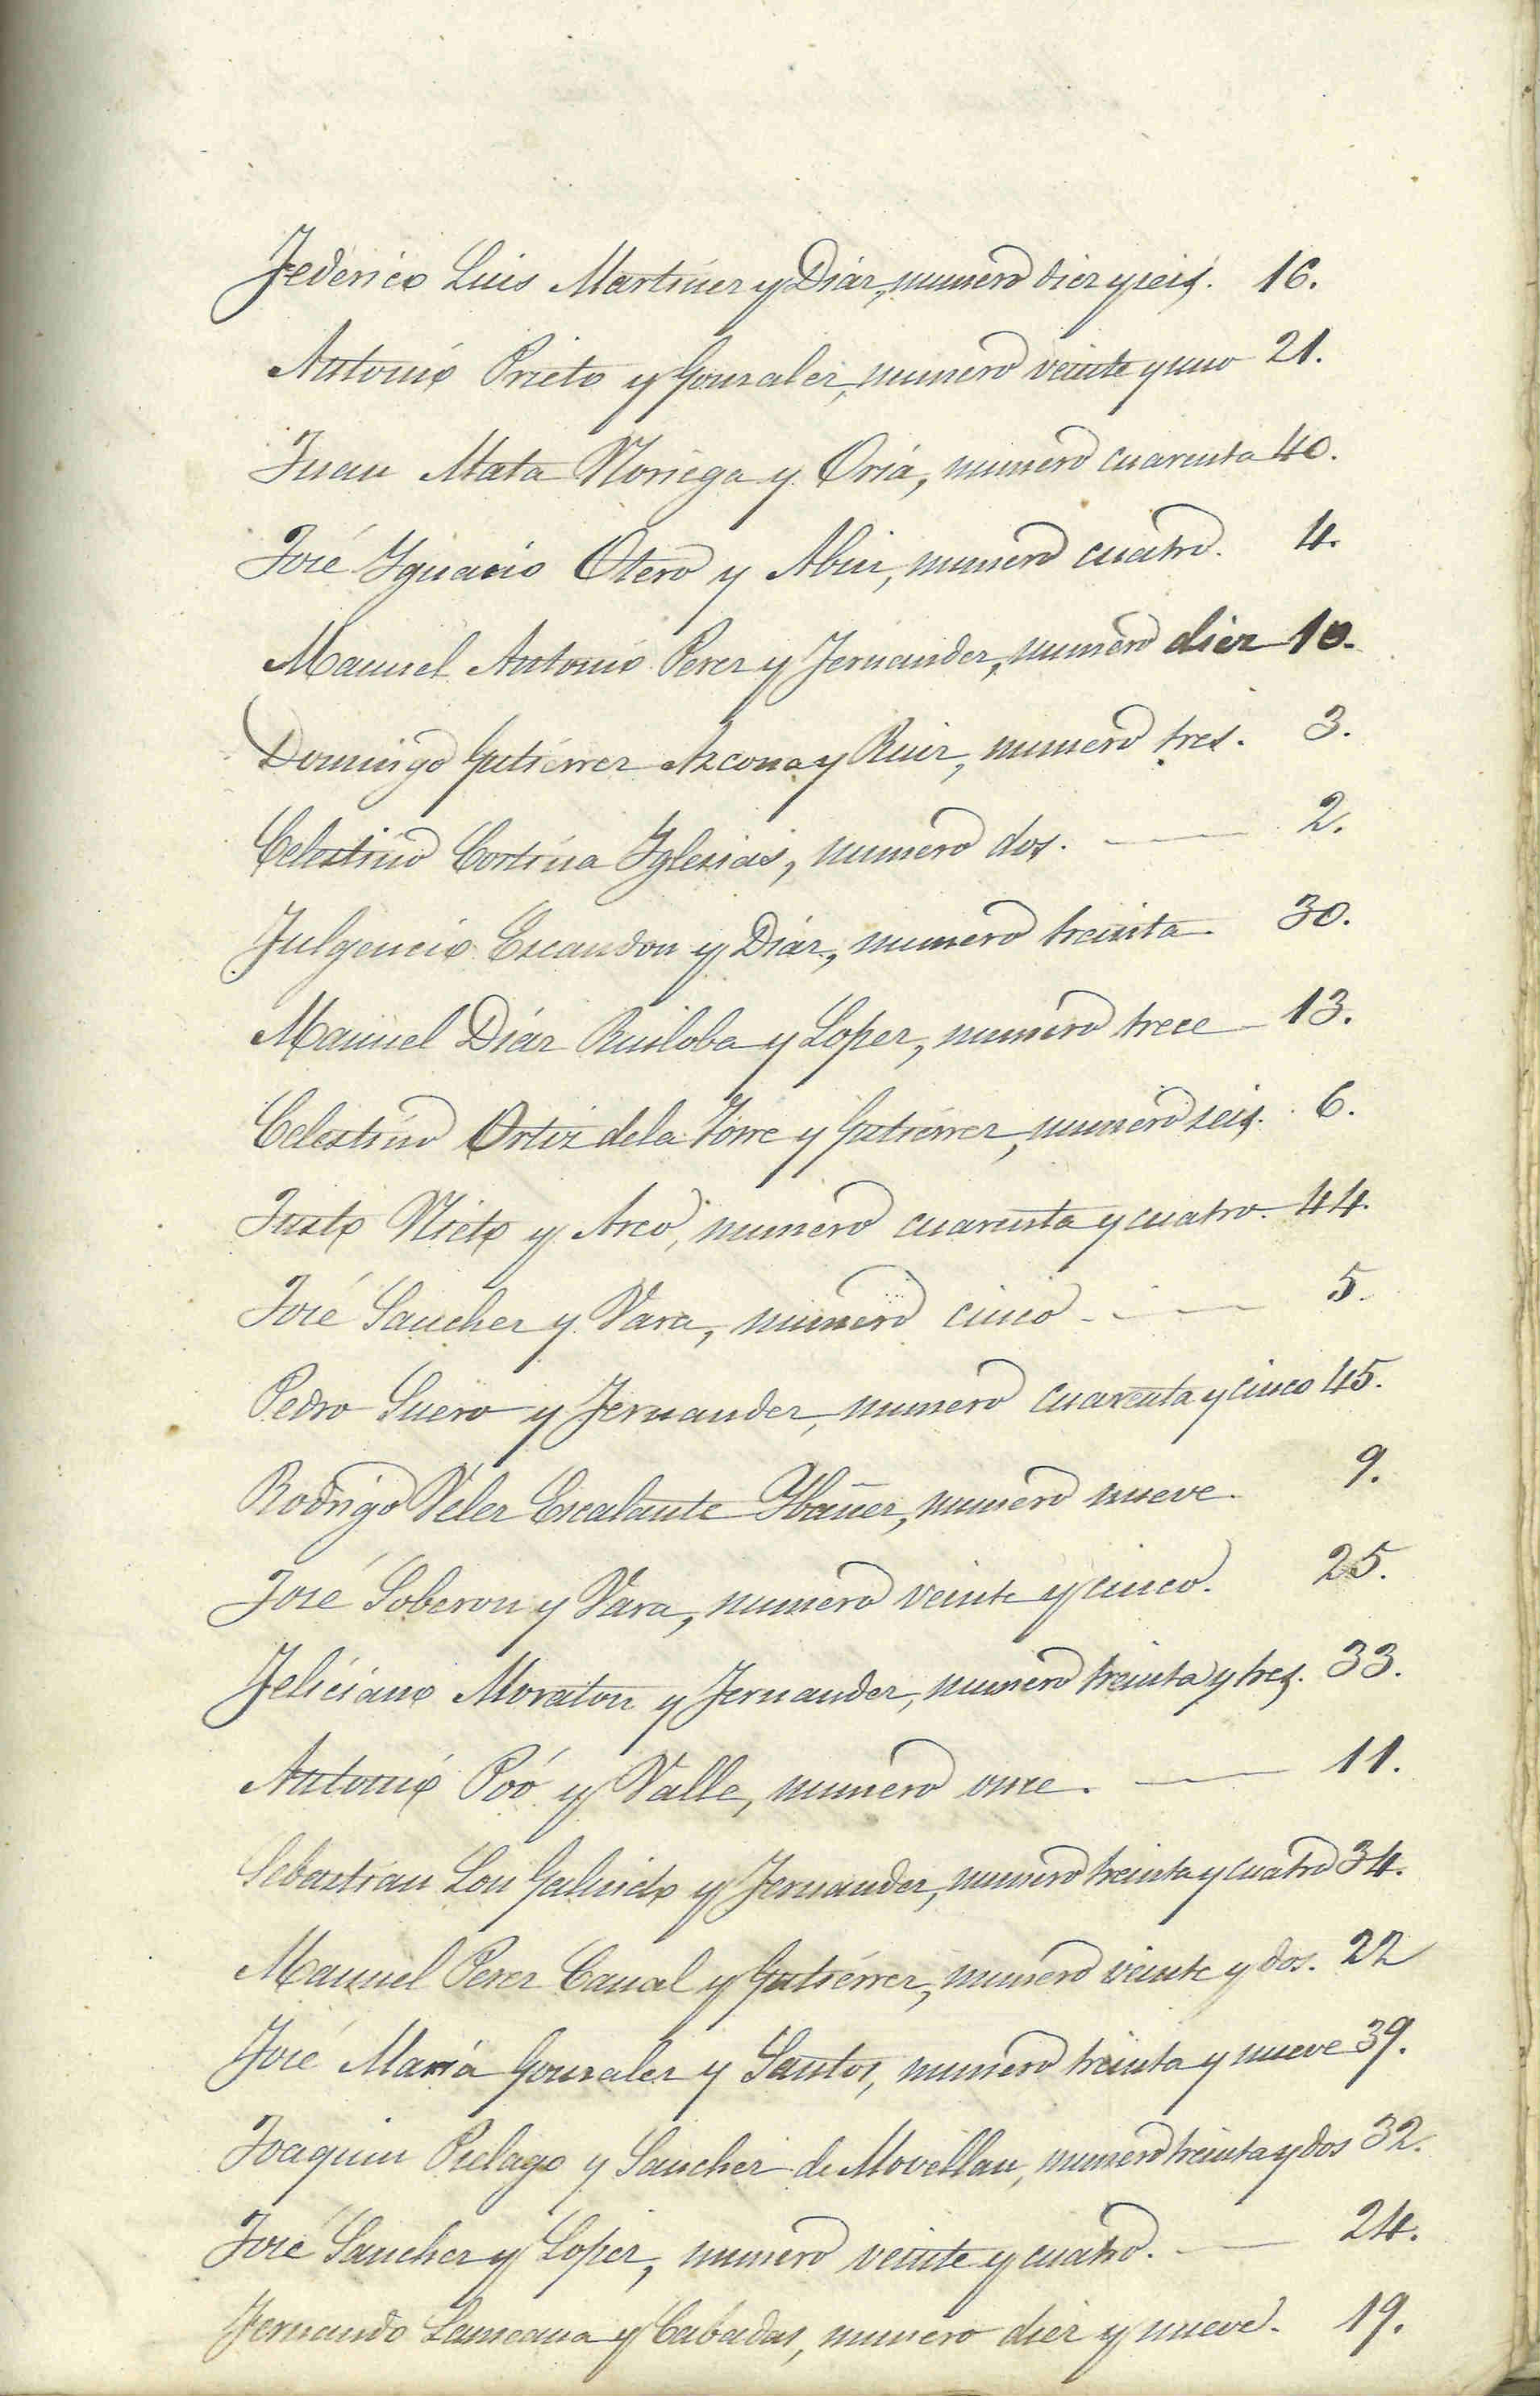 Federico Luis Martinez y Diáz, numero diez y seis. 16.
Antonio Prieto y Gonzalez, numero veinte y uno 21.
Juan Mata Noriega y Oria, numero cuarenta 40.
José Ygnacio Otero y Abin, numero cuatro. 4.
Manuel Antonio Perez y Fernandez, numero diez 10.
Domingo Gutiérrez Azcona y Ruiz, numero tres. 3.
Celestino Cortina Yglesias, numero dos. — 2.
Fulgencio Escandon y Diáz, numero treinta. 30.
Manuel Diáz Ruiloba y Lopez, numero trece 13.
Celestino Ortiz de la Torre y Gutierrez, numero seis. 6.
Justo Nieto y Arco, numero cuarenta y cuatro. 44.
José Sanchez y Vara, numero cinco — 5.
Pedro Suero y Fernandez, numero cuarenta y cinco 45.
Rodrigo Velez Escalante Ybañez, numero nueve. 9.
José Soberon y Vara, numero veinte y cinco. 25.
Feliciano Moraton y Fernandez, numero treinta y tres. 33.
Antonio Poó y Valle, numero once. — 11.
Sebastian Lon Galindo y Fernandez, numero treinta y cuatro 34.
Manuel Perez Canal y Gutiérrez, numero veinte y dos. 22
José María Gonzalez y Santos, numero treinta y nueve 39.
Joaquin Pielago y Sanchez de Movellan, numero treinta y dos 32.
José Sanchez y Lopez, numero veinte y cuatro. — 24.
Fernando y Cabadas, numero diez y nueve. 19.